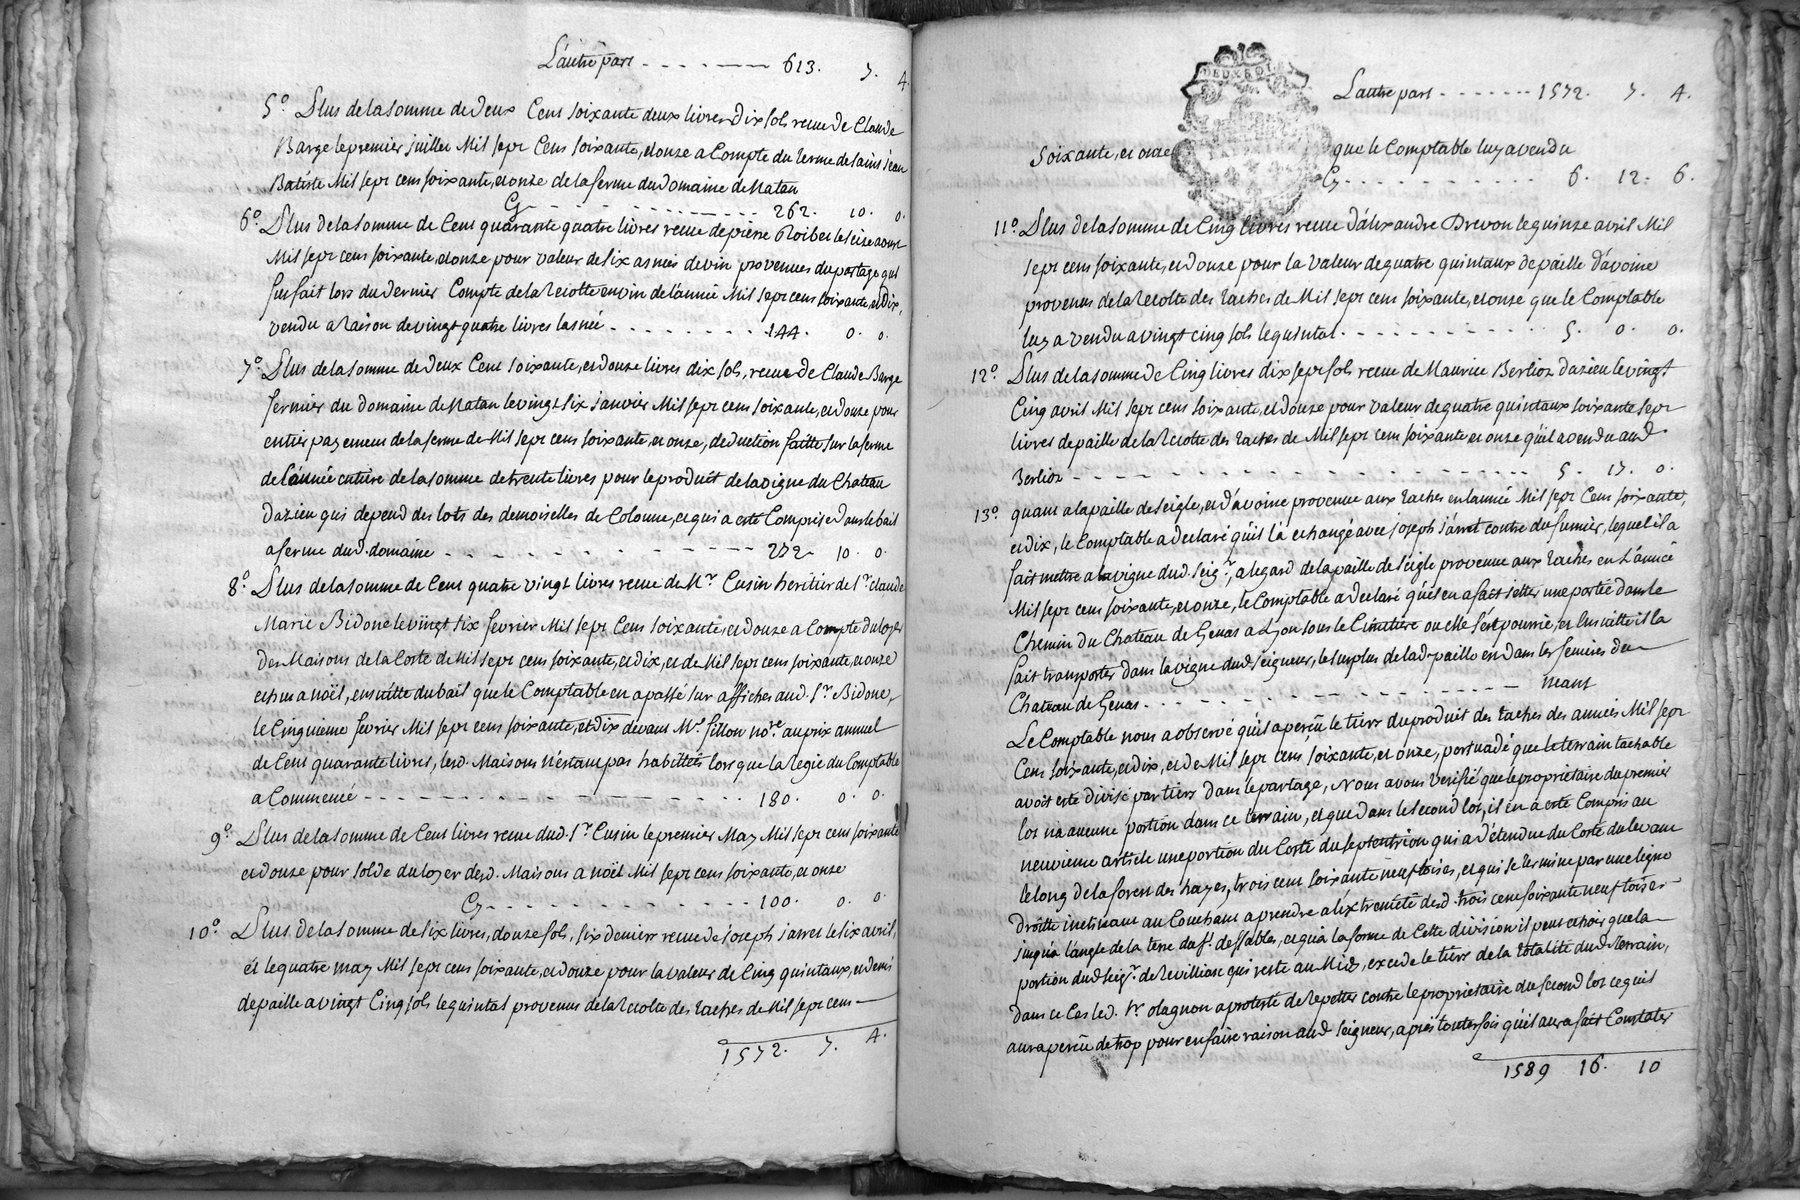 L'autre part - - - - - - - 613. 7. 4
5° Plus de la somme de deux Cent soixante deux livres dix sols recue de Claude
Barge le premier juillet Mil sept Cens soixante, et onze a Compte du terme de saint jean
Batiste Mil sept cens soixante, et onze de la ferme du domaine de Matan
Cy - - - - - - - - - - 262. 10. 0.
6° Plus de la somme de Cent quarante quatre livres recue de pierre Roibet le seize aoust
Mil sept cens soixante, et onze pour valeur de six asnées de vin provenues du partage qui
fut fait lors du dernier Compte de la recolte en vin de l'année Mil sept cens soixante, et dix,
vendu a raison de vingt quatre livres l'asnée - - - - - - - - 144. 0. 0.
7° Plus de la somme de deux Cent soixante, et douze livres dix sols, recue de Claude Barge
fermier du domaine de Matan le vingt six janvier Mil sept cens soixante, et douze pour
entier payement de la ferme de Mil sept cens soixante, et onze, deduction faitte sur la ferme
de l'année entiere de la somme de trente livres pour le produit de la vigne du Chateau
dazieu qui depend des lots des demoiselles de Colonne, et qui a esté Comprise dans le bail
a ferme dud. domaine - - - - - - - - - - - 272 - 10. 0.
8° Plus de la somme de Cent quatre vingt livres recue de Mr. Cusin heritier de Sr. claude
Marie Bidone le vingt six fevrier Mil sept Cens soixante, et douze a Compte du loyer
des Maisons de la Coste de Mil sept cens soixante, et dix, et de Mil sept cens soixante, et onze
echus a noël, ensuitte du bail que le Comptable en a passé sur affiches aud. Sr. Bidone,
le Cinquieme fevrier Mil sept cens soixante, et dix devant Me. fillon nore. au prix annuel
de Cent quarante livres, lesd. Maisons n'étant pas habittés lors que la regie du Comptable
a Commencé - - - - - - - - - - - - 180. 0. 0.
9° Plus de la somme de Cent livres recue dud. Sr. Cusin le premier May Mil sept cens soixante
et douze pour solde du loyer desd. Maisons a noël Mil sept cens soixante, et onze
Cy - - - - - - - - - - - - 100. 0. 0
10° Plus de la somme de six livres, douze sols, six deniers recue de joseph jarret le six avril,
et le quatre may Mil sept cens soixante, et douze pour la valeur de Cinq quintaux, et demi
de paille a vingt Cinq sols le quintal provenus de la recolte des taches de Mil sept cens
1572. 7. 4.
DEUX SOLS
L'autre part - - - - - - - - 1572. 7. 4.
soixante, et onze que le Comptable luy a vendu
Cy - - - - - - - - - - 6. 12. 6.
11° Plus de la somme de Cinq livres recue d'alixandre Drevon le quinze avril Mil
sept cens soixante, et douze pour la valeur de quatre quintaux de paille d'avoine
provenus de la recolte des taches de Mil sept cens soixante, et onze que le Comptable
luy a vendu a vingt cinq sols le quintal - - - - - - - - - - 5. 0. 0.
12° Plus de la somme de Cinq livres dix sept sols recue de Maurice Berlioz dazieu le vingt
Cinq avril Mil sept cens soixante, et douze pour valeur de quatre quintaux soixante sept
livres de paille de la recolte des taches de Mil sept cens soixante et onze qu'il a vendu aud.
Berlioz - - - - - - - - - - - - - 5. 17. 0.
13° quant a la paille de seigle, et d'avoine provenue aux taches en l'année Mil sept Cens soixante,
et dix, le Comptable a declaré qu'il l'a echangé avec joseph jarret contre du fumier, lequel il a
fait mettre a la vigne dud. seigr., a l'egard de la paille de seigle provenue aux taches en l'année
Mil sept cens soixante, et onze, le Comptable a declaré qu'il en a fait jetter une portée dans le
Chemin du Chateau de Genas a Lyon sous le Cimetiere ou elle s'est pourrie, et Ensuitte il la
fait transporter dans la vigne dud. seigneur, le surplus de lad. paille est dans les fenieres du
Chateau de Genas - - - - - - - - - - - neant
Le Comptable nous a observé qu'il a perçu le tiers du produit des taches des années Mil sept
Cens soixante, et dix, et de Mil sept cens soixante, et onze, persuadé que le terrain tachable
avoit esté divisé par tiers dans le partage, Nous avons verifié que le proprietaire du premier
lot n'a aucune portion dans ce terrain, et que dans le second lot, il en a esté Compris au
neuvieme article une portion du Costé du septentrion qui a d'étendue du Costé du levant
le long de la forest des hayes, trois cent soixante neuf toises, et qui se termine par une ligne
droitte inclinant au Couchant a prendre a l'extremité desd. trois cent soixante neuf toises
jusqu'a l'angle de la terre du Sr. dessables, et qu'a la forme de Cette division il peut echoir que la
portion dud. seigr. de Revilliasc qui reste au Midy, excede le tiers de la totalité dud. terrain,
dans ce Cas led. Sr. olagnon a protesté de repetter contre le proprietaire du second lot ce qu'il
aura perçu de trop pour en faire raison aud. seigneur, après toutefois qu'il aura fait Constater
1589 16. 10